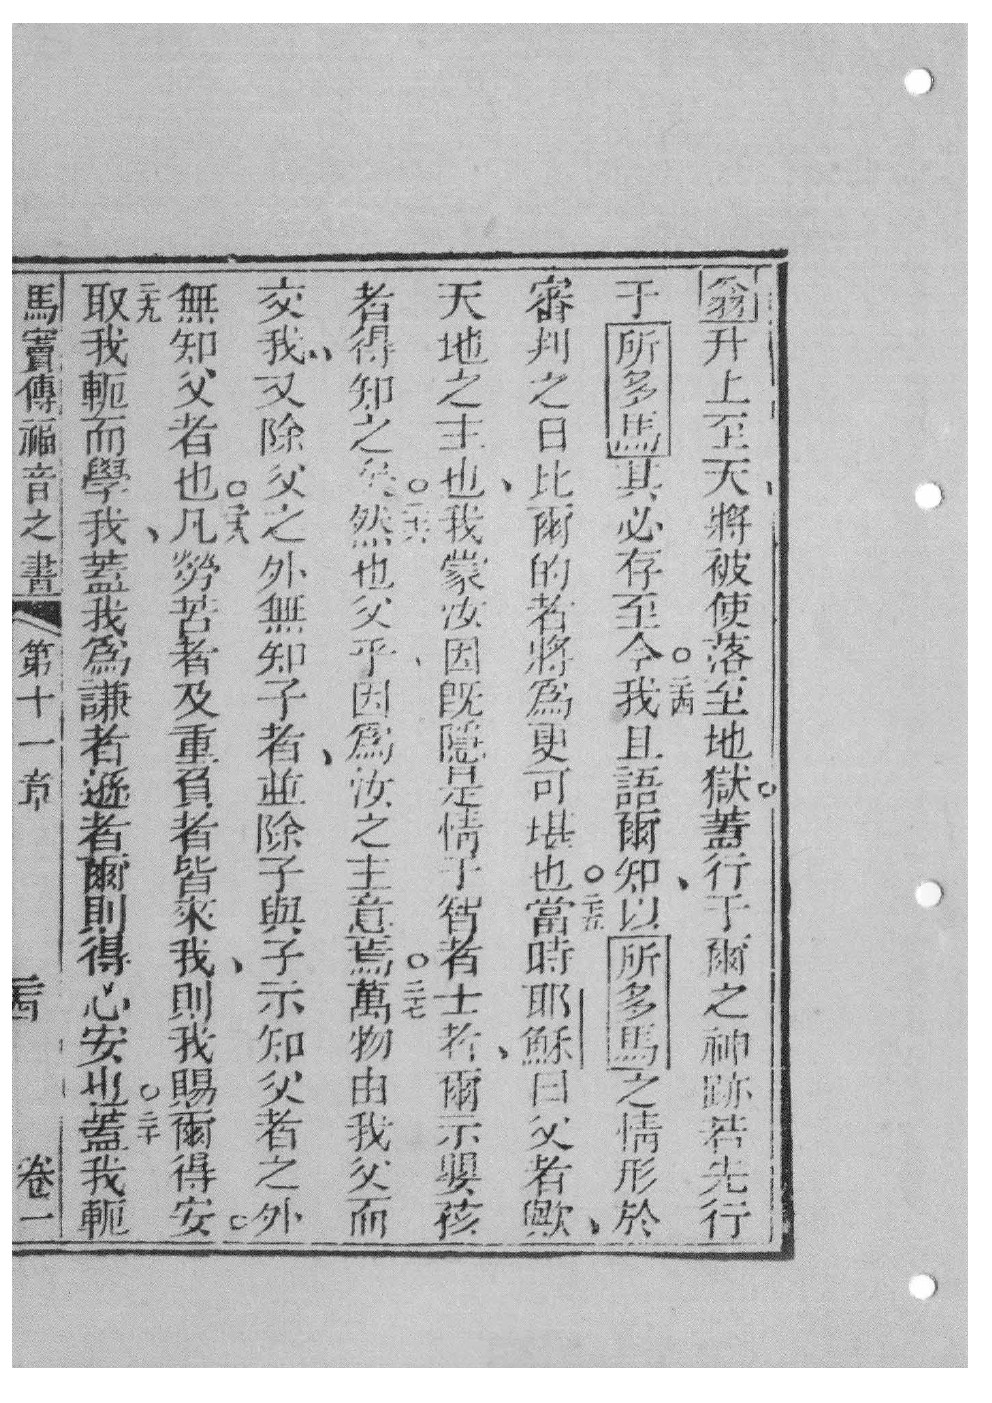 翁升上至天將被使落至地獄蓋行于爾之神跡若先行
于所多馬其必存至今○二四我且語爾知以所多馬之情形於
審判之日比爾的者將爲更可堪也○二五當時耶穌曰父者歟
天地之主也我蒙汝因既隱是情于智者士者爾示嬰孩
者得知之矣○二六然也父乎因爲汝之主意焉○二七萬物由我父而
交我又除父之外無知子者並除子與子示知父者之外
無知父者也○二八凡勞苦者及重負者皆來我則我賜爾得安○
二九取我軛而學我蓋我爲謙者遜者爾則得心安也○三十蓋我軛
馬竇傳福音之書 第十一章 卷一